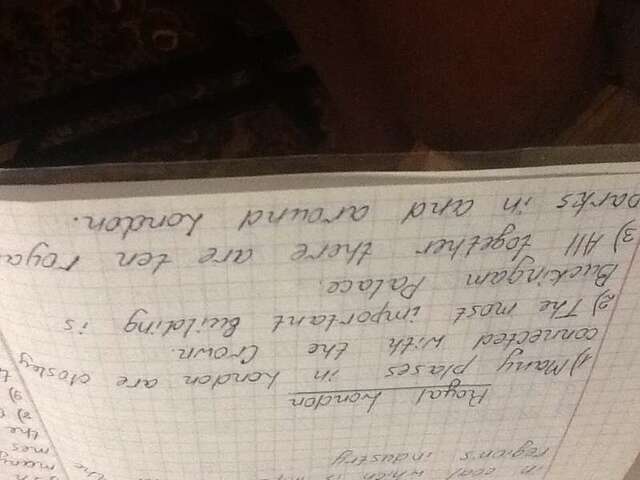 in coal, which is
region's industry
Royal London
1) Many plases in London are closley
connected with the Crown.
2) The most important Building is
Buckingam Palace.
3) All together there are ten roya
parks in and around London.
many
mes
the